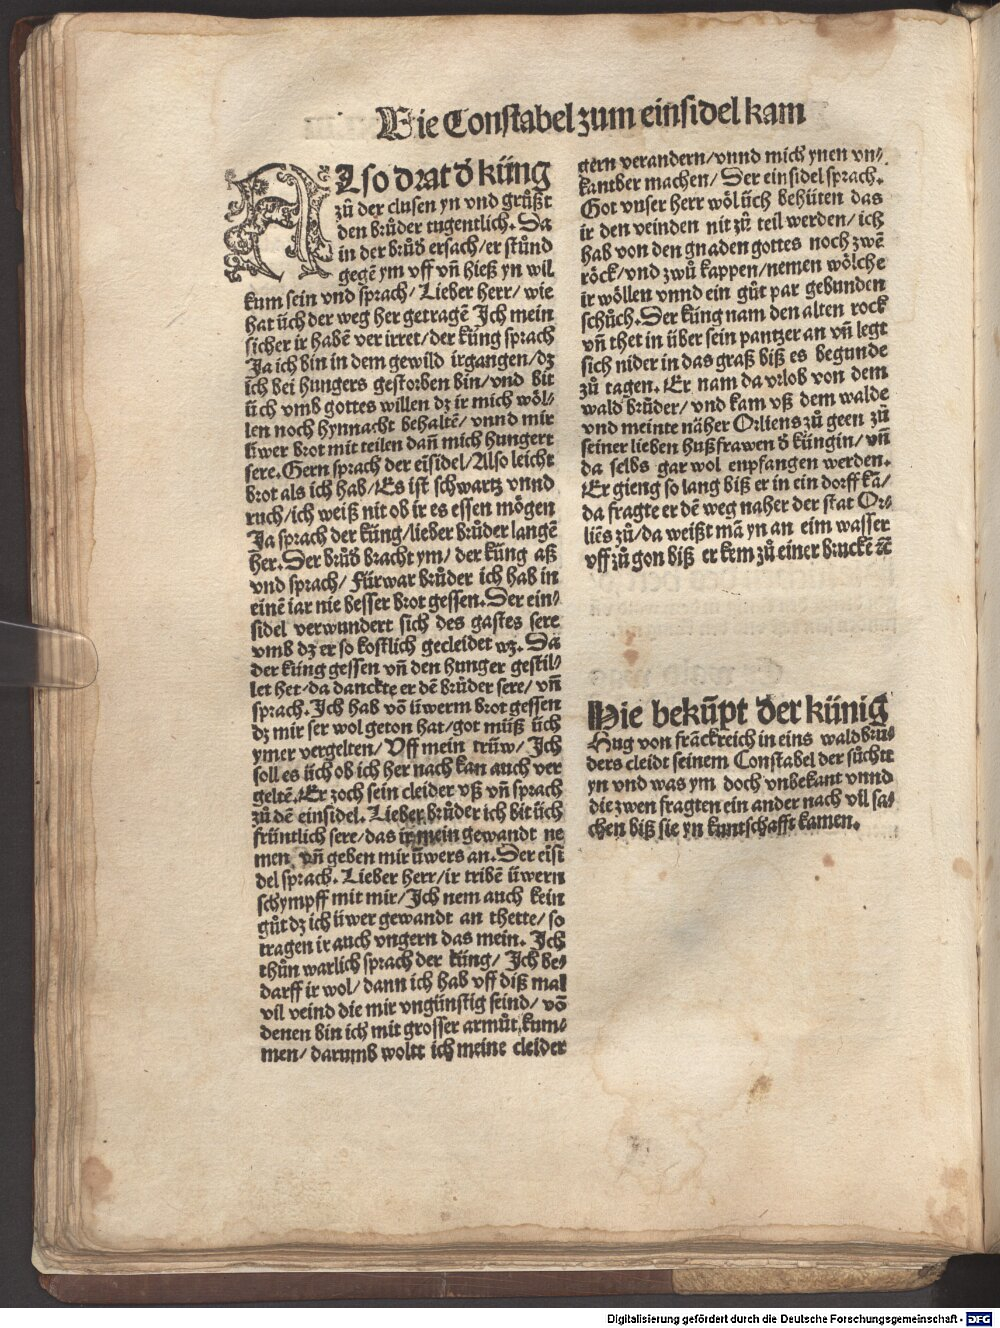 Wie Constabel zum einsidel kam
ALso drat d̄ küng
zů der clusen yn vnd grůßt
den brůder tugentlich. Da
in der brůd̄ ersach/er stůnd
gegē ym vff vñ hieß yn wil
kum sein vnd sprach/ Lieber herr/ wie
hat üch der weg her getragē Ich mein
sicher ir habē ver irret/der küng sprach
Ja ich bin in dem gewild irgangen/dz
ich bei hungers gestorben bin/vnd bit
üch vmb gottes willen dz ir mich wöl⸗
len noch hynnacht behaltē/ vnnd mir
üwer brot mit teilen dañ mich hungert
sere. Gern sprach der eīsidel/Also leicht
brot als ich hab/Es ist schwartz vnnd
ruch/ich weiß nit ob ir es essen mögen
Ja sprach der küng/lieber brůder langē
her. Der brůd̄ bracht ym/ der küng aß
vnd sprach/ Fürwar brůder ich hab in
einē iar nie besser brot gessen. Der ein⸗
sidel verwundert sich des gastes sere
vmb dz er so kostlich gecleidet wz. Da
der küng gessen vñ den hunger gestil⸗
let het/da danckte er dē brůder sere/ vñ
sprach. Ich hab vō üwerm brot gessen
dz mir ser wol geton hat/got müß üch
ymer vergelten/ Vff mein trüw/ Ich
soll es üch ob ich her nach kan auch ver
geltē. Er zoch sein cleider vß vñ sprach
zů dē einsidel. Lieber brůder ich bit üch
früntlich sere/das ir mein gewandt ne
men vñ geben mir üwers an. Der eīsi
del sprach. Lieber herr/ir tribē üwern
schympff mit mir/Ich nem auch kein
gůt dz ich üwer gewandt an thette/ so
tragen ir auch vngern das mein. Ich
thůn warlich sprach der küng/ Ich be⸗
darff ir wol/ dann ich hab vff diß mal
vil veind die mir vngünstig seind/ vō
denen bin ich mit grosser armůt kum⸗
men/ darumb woltt ich meine cleider
gern verandern/vnnd mich ynen vn⸗
kantber machen/ Der einsidel sprach.
Got vnser herr wöl üch behüten das
ir den veinden nit zů teil werden/ ich
hab von den gnaden gottes noch zwē
röck/vnd zwů kappen/nemen wölche
ir wöllen vnnd ein gůt par gebunden
schůch. Der küng nam den alten rock
vñ thet in über sein pantzer an vñ legt
sich nider in das graß biß es begunde
zů tagen. Er nam da vrlob von dem
wald brůder/ vnd kam vß dem walde
vnd meinte näher Orliens zů geen zů
seiner lieben hußfrawen d̄ küngin/ vñ
da selbs gar wol enpfangen werden.
Er gieng so lang biß er in ein dorff kā/
da fragte er dē weg naher der stat Or⸗
liēs zů/da weißt mā yn an eim wasser
vff zů gon biß er kem zů einer brucke ꝛc̄
Hie bekūpt der künig
Hug von frāckreich in eins waldbrů⸗
ders cleidt seinem Constabel der sůchtt
yn vnd was ym doch vnbekant vnnd
die zwen fragten ein ander nach vil sa⸗
chen biß sie yn kuntschafft kamen.
Digitalisierung gefördert durch die Deutsche Forschungsgemeinschaft - DFG